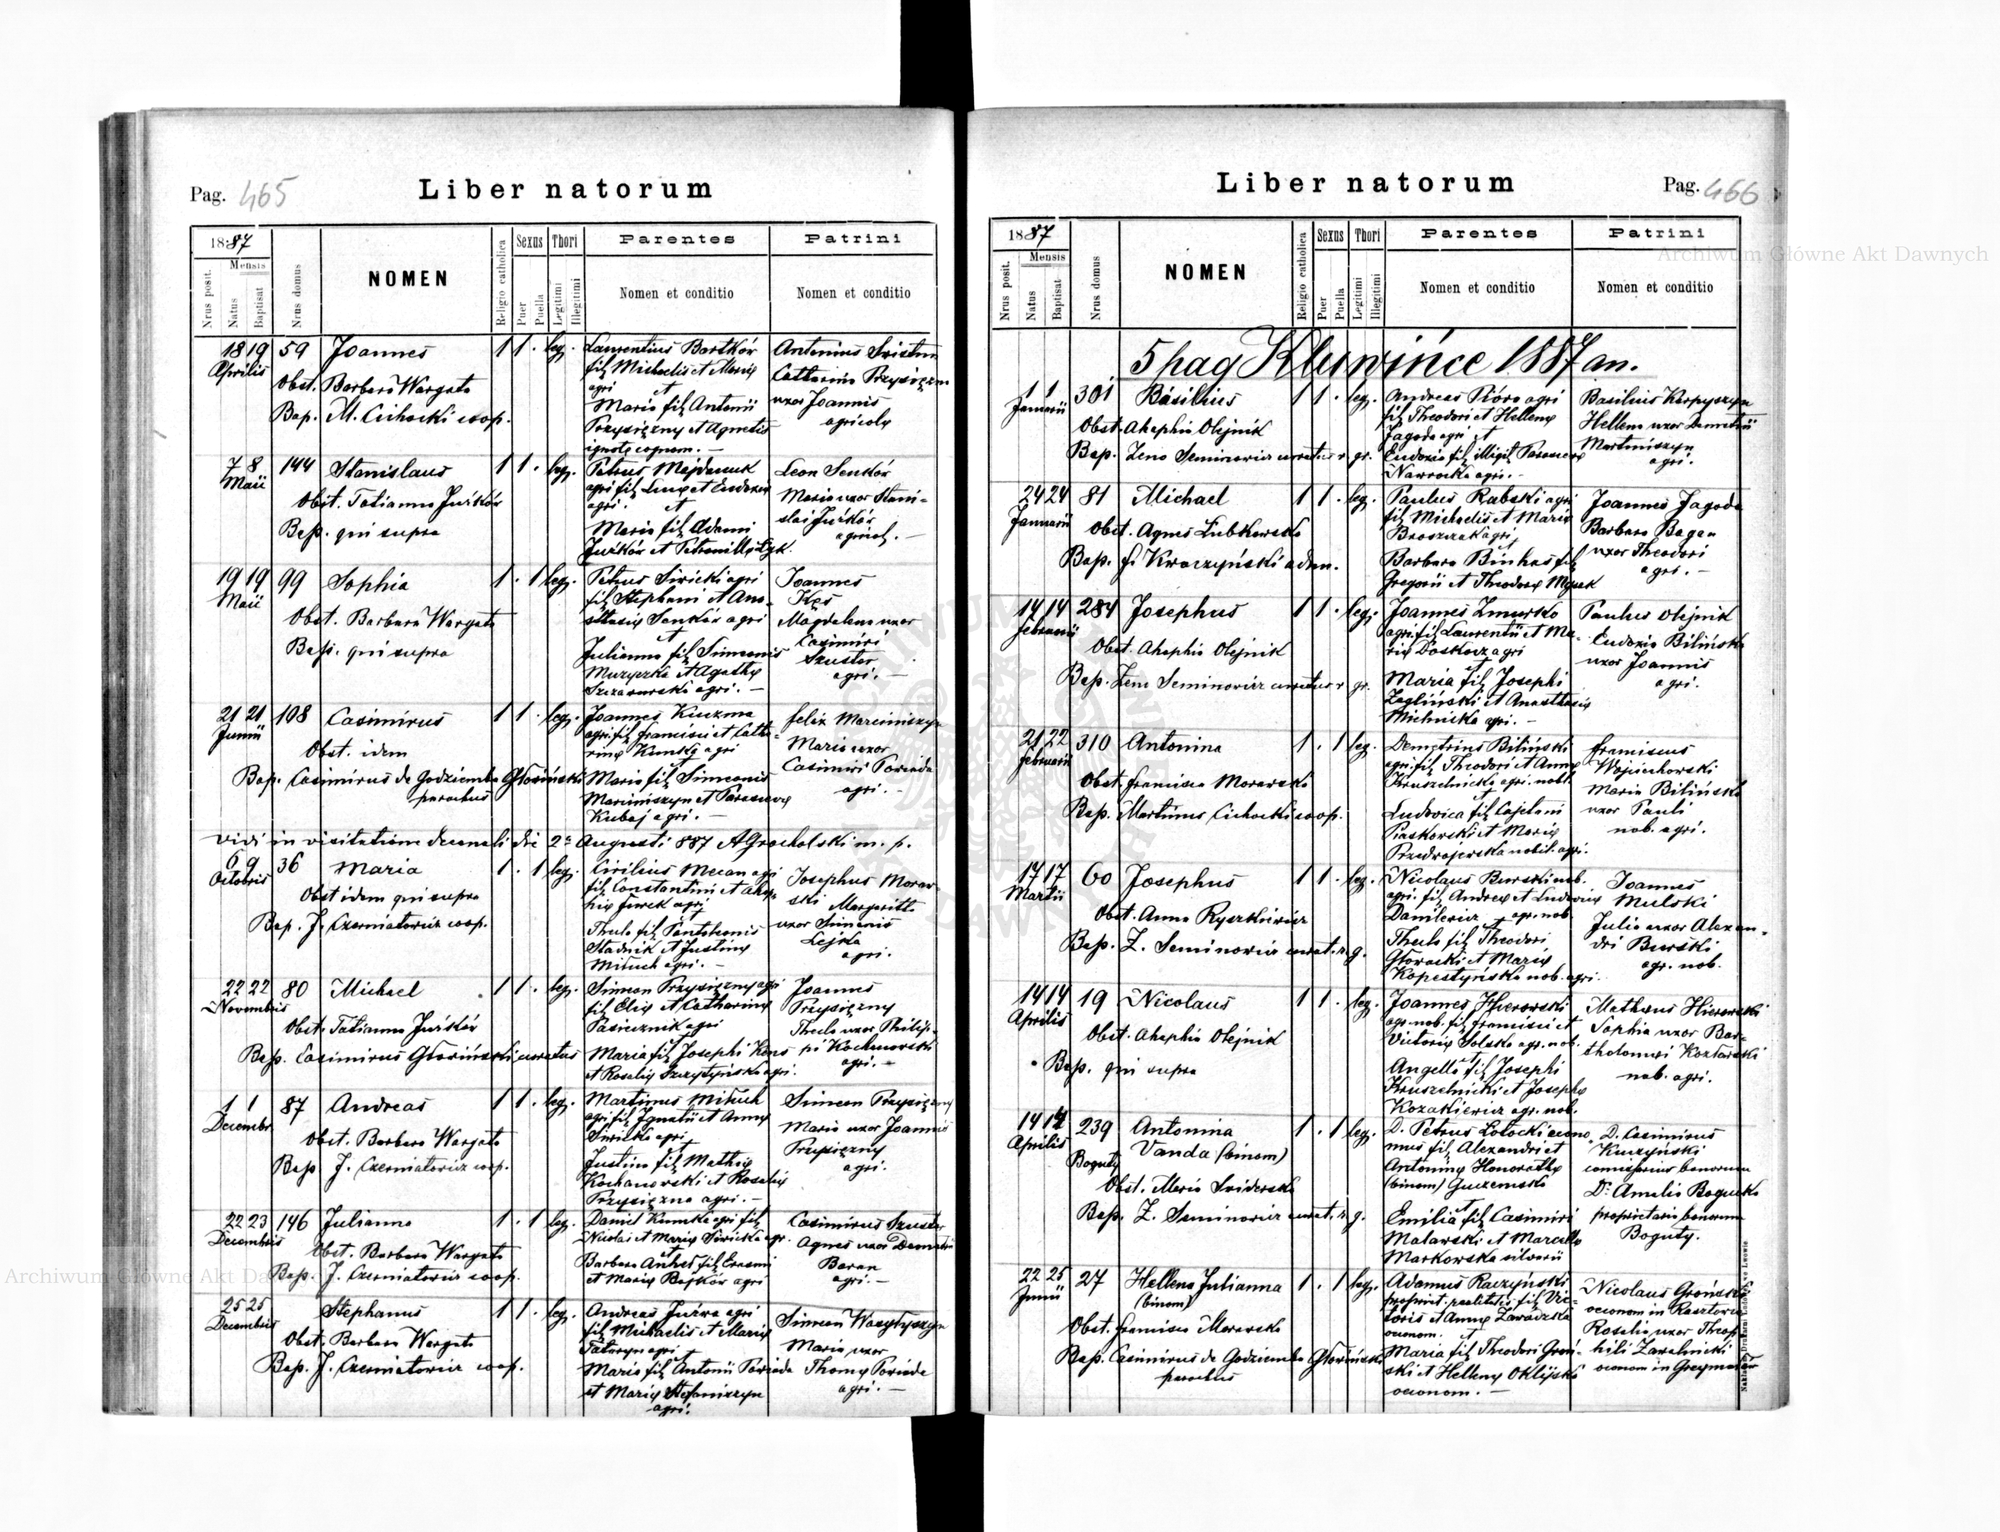 Pag. 465
Liber natorum
1887
Mensis
Nrus posit.
Natus
Baptisat
Nrus domus
NOMEN
Religio catholica
Sexus
Puer
Puella
Thori
Legitimi
Illegitimi
Parentes
Nomen et conditio
Patrini
Nomen et conditio
18 19 59 Joannes 1 1 . leg.
Aprilis
Obst. Barbara Wargata
Bap. M. Cichocki coop.
Laurentius Bartków
fil Michaelis et Mariæ
agri
et
Maria fil Antonii
Przysiężny et Agnetis
ignotæ cognom. —
Antonius
Catharina
uxor Joannis
agricolæ
7 8 144 Stanislaus 1 1 . leg.
Maii
Obst. Tatianna Juśków
Bap. qui supra
Petrus
agri fil Lucæ et Eudoxiæ
agri. et
Maria fil Adami
Juśków et Petronillæ Łyk.
Leon Senków
Maria uxor Stani-
slai Juśków
agricol. —
19 19 99 Sophia 1 . 1 leg.
Maii
Obst. Barbara Wargata
Bap. qui supra
Petrus Siwicki agri
fil Stephani et Ana-
stasiæ Senków agri
et
Julianna fil Simeonis
Muzyczka et Agathæ
agri. —
Joannes
Kęs
Magdalena uxor
Casimiri
Szuster
agri. —
21 21 108 Casimirus 1 1 . leg.
Junii
Obst. idem
Bap. Casimirus de Godziemba Głosiński
parochus
Joannes Kuczma
agri fil Francisci et Catha-
rinæ agri
et
Maria fil Simeonis
Marciniszyn et Parasceviæ
Kubaj agri. —
Felix Marciniszyn
Maria uxor
Casimiri Poriada
agri. —
Vidi in visitatione decanali die 2a Augusti 887 AGrocholski m. p.
6 9 36 Maria 1 . 1 leg.
Octobris
Obst idem qui supra
Bap. J. Czerniatowicz coop.
Cirilius agri
fil Constantini et
agri
et
Thecla fil Pantheonis
Stadnik et Justinæ
Mituch agri. —
Josephus Moraw-
ski Margaritta
uxor Simeonis
Lejka
agri.
22 22 80 Michael 1 1 . leg.
Novembris
Obst. Tatianna Juśków
Bap. Casimirus Głosiński curatus
Simeon Przysiężny agri
fil Eliæ et Catharinæ
Pasiecznik agri
et
Maria fil Josephi
et Rosaliæ agri.
Joannes
Przysiężny
Thecla uxor Philip-
pi Kochanowski
agri. —
1 1 87 Andreas 1 1 . leg.
Decembr
Obst. Barbara Wargata
Bap J. Czerniatowicz coop.
Martinus Mituch
agri fil Ignatii et Annæ
Siwicka agri
et
Justina fil Mathiæ
Kochanowski et Rosaliæ
Przysiężna agri. —
Simeon Przysiężny
Maria uxor Joannis
Przysiężny
agri.
22 23 146 Julianna 1 . 1 leg.
Decembris
Obst. Barbara Wargata
Bap. J. Czerniatowicz coop.
Daniel agri fil
Nicolai et Mariæ Siwicka agr.
et
Barbara fil Erasmi
et Mariæ agri
Casimirus Szuster
Agnes uxor Demetrii
Baran
agri. —
25 25 Stephanus 1 1 . leg.
Decembris
Obst. Barbara Wargata
Bap. J. Czerniatowicz coop.
Andreas agri
fil Michaelis et Mariæ
agri
et
Maria fil Antonii Poriada
et Mariæ Stefaniszyn
agri.
Simeon Wasylyszyn
Maria uxor
Thomæ Poriada
agri. —
Pag. 466
Liber natorum
1887
Mensis
Nrus posit.
Natus
Baptisat
Nrus domus
NOMEN
Religio catholica
Sexus
Puer
Puella
Thori
Legitimi
Illegitimi
Parentes
Nomen et conditio
Patrini
Nomen et conditio
5 pag Kluwińce 1887 an.
1 1 301 Basilius 1 1 . leg.
Januarii
Obst. Ahaphia Olejnik
Bap. Zeno Seminowicz curatus r. gr.
Andreas agri
fil Theodori et Hellenæ
Jagoda agri et
Eudoxia fil illegit. Parasceviæ
Nawrocka agri. —
Basilius Karpyszyn
Hellena uxor Demetrii
Martiniszyn
agri.
24 24 81 Michael 1 1 . leg.
Januarii
Obst. Agnes Lubkowska
Bap. F. Kwaczyński adm.
Paulus Rabski agri
fil Michaelis et Mariæ
agri
Barbara fil
Gregorii et Theodoræ
Joannes Jagoda
Barbara
uxor Theodori
agri. —
14 14 284 Josephus 1 1 . leg.
Februarii
Obst. Ahaphia Olejnik
Bap. Zeno Seminowicz curatus r. gr.
Joannes Zmursko
agri fil Laurentii et Ma-
riæ agri
et
Maria fil Josephi
Zagliński et Anasthasiæ
Michniska agri. —
Paulus Olejnik
Eudoxia Bilińska
uxor Joannis
agri.
21 22 310 Antonina 1 . 1 leg.
Februarii
Obst. Francisca Morawska
Bap. Martinus Cichocki coop.
Demetrius Biliński
agri fil Theodori et Annæ
Kruszelnicka agri. nobil
et
Ludovica fil Cajetani
Piaskowski et Mariæ
nobil. agri.
Franciscus
Wojciechowski
Maria Bilińska
uxor Pauli
nob. agri.
17 17 60 Josephus 1 1 . leg.
Martii
Obst. Anna Ryszkiewicz
Bap. Z. Seminowicz curat. r. g.
Nicolaus Burski nob.
agri. fil Andreæ et Ludoviæ
Danilewicz agr. nob
et
Thecla fil Theodori
Głowacki et Mariæ
Kopestyńska nob. agri.
Joannes
Mulski
Julia uxor Alexan-
dri Burski
agr. nob.
14 14 19 Nicolaus 1 1 . leg.
Aprilis
Obst. Ahaphia Olejnik
Bap. qui supra
Joannes Hierowski
agr. nob. fil Francisci et
Victoriæ Solska agr. nob.
et
Angella fil Josephi
Kruszelnicki et Josephæ
Kozakiewicz agr. nob.
Matheus Hierowski
Sophia uxor Bar-
tholomei Kozłowski
nob. agri.
14 14 239 Antonina 1 . 1 leg.
Aprilis Vanda (binom)
Boguty
Obst. Maria Sviderska
Bap. Z. Seminowicz curat. r. g.
D. Petrus Łotocki econo-
mus fil Alexandri et
Antoninæ Honorathæ
(binom) Guczemska
et
Emilia fil Casimiri
Malawski et Marcellæ
Markowska silvarii
D. Casimirus
Kuczyński
comissarius bonorum
Da Amalia Bogucka
proprietaria bonorum
Boguty.
22 25 27 Hellena Julianna 1 . 1 leg.
Junii (binom)
Obst. Francisca Morawska
Bap. Casimirus de Godziemba Głosiński
parochus
Adamus Raczyński
propriet. realitatis fil Vic-
toris et Annæ Zawadzka
oeconom. et
Maria fil Theodori Groń-
ski et Hellenæ Oklijska
oeconom. —
Nicolaus Grońska
oeconom in Rasztowce
Rosalia uxor Theop-
hili Zawalnicki
oeconom in Grzymałów
Archiwum Główne Akt Dawnych
Archiwum Główne Akt Dawnych